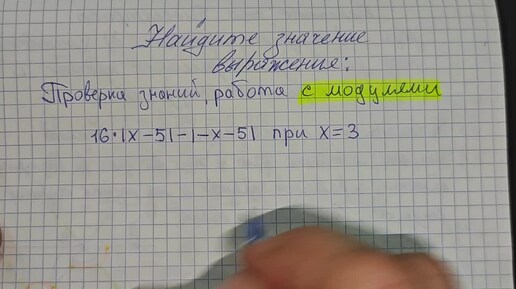 Найдите значение
выражение:
Проверка знаний, работа с модулями
16·|x-5|-|-x-5| при x=3